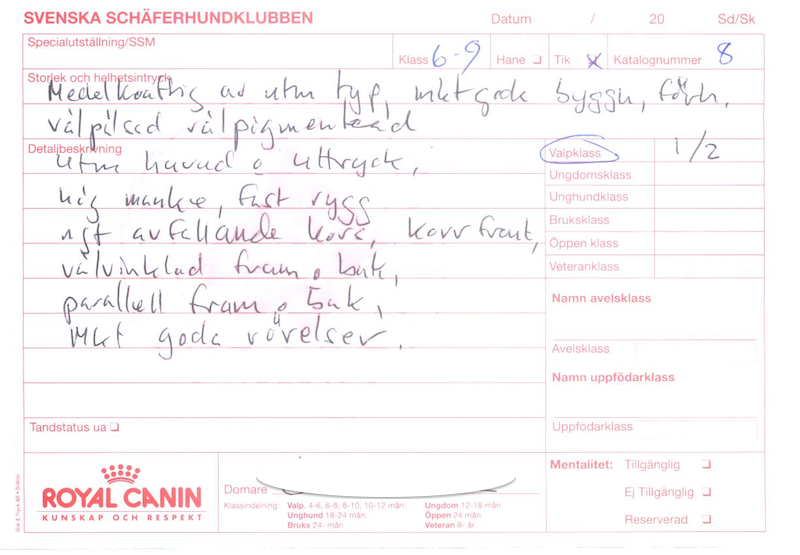 SVENSKA SCHÄFERHUNDKLUBBEN
Datum / 20 Sd/Sk
Specialutställning/SSM
Klass 6-9 Hane Tik x Katalognummer 8
Storlek och helhetsintryck
Medelkraftig av utm typ, mkt goda byggn, förh,
välpälsad välpigmenterad
Detaljbeskrivning
utm huvud o uttryck,
hög manke, fast rygg
ngt avfallande kors, korr front,
välvinklad fram o bak,
parallell fram o bak,
Mkt goda rörelser.
Valpklass 1/2
Ungdomsklass
Unghundklass
Bruksklass
Öppen klass
Veteranklass
Namn avelsklass
Avelsklass
Namn uppfödarklass
Uppfödarklass
Tandstatus ua
Mentalitet: Tillgänglig
Ej Tillgänglig
Reserverad
ROYAL CANIN
KUNSKAP OCH RESPEKT
Domare
Klassindelning Valp. 4-6, 6-8, 8-10, 10-12 mån. Ungdom 12-18 mån
Unghund 18-24 mån. Öppen 24 mån.
Bruks 24- mån Veteran 8- år